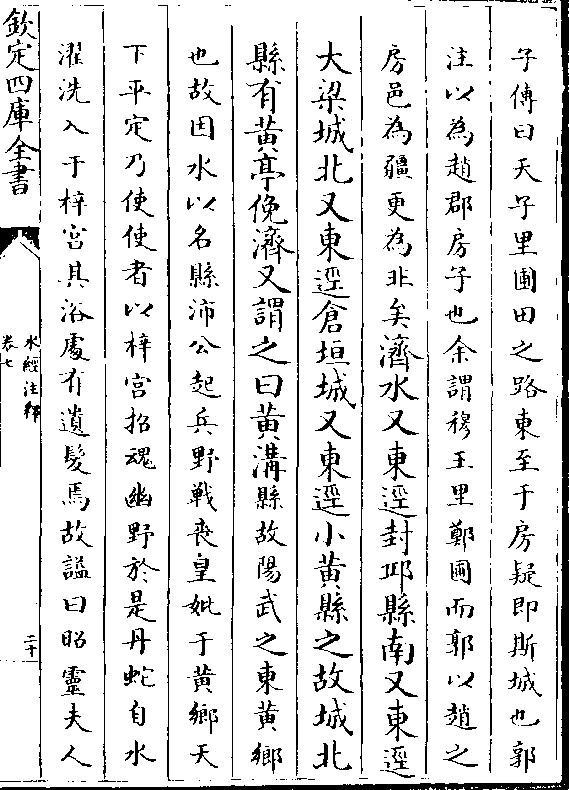 子傳曰天子里圃田之路東至于房疑即斯城也郭
注以為趙郡房子也余謂穆王里鄭圃而郭以趙之
房邑為疆更為非矣濟水又東逕封邱縣南又東逕
大梁城北又東逕倉垣城又東逕小黃縣之故城北
縣有黃亭俛濟又謂之曰黃溝縣故陽武之東黃鄉
也故因水以名縣沛公起兵野戰喪皇妣于黃鄉天
下平定乃使使者以梓宮招魂幽野於是丹蛇自水
濯洗入于梓宮其浴處有遺髮焉故諡曰昭靈夫人
欽定四庫全書
水經注釋
卷七
二十